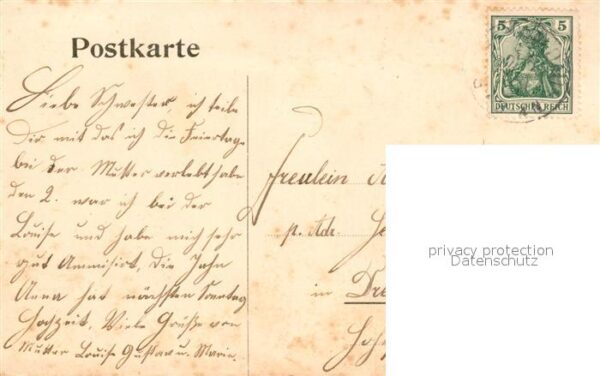 Postkarte
5 5
DEUTSCHES REICH
Liebe Schwester, ich teile
Dir mit das ich die Feiertage
bei der Mutter verlebt habe
den 2. war ich bei der
Louise und habe mich sehr
gut Ammisirt, die Jahn
Anna hat nächsten Sonntag
Hochzeit. Viele Grüße von
Mutter Louise Gustav u. Marie.
Freulein
p. Adr.
in Dre
privacy protection
Datenschutz